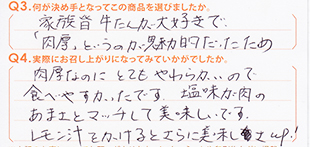 Q3.何が決め手となってこの商品を選びましたか。
家族皆牛たんが大好きで、
「肉厚」というのが魅力的だったため
Q4.実際にお召し上がりになってみていかがでしたか。
肉厚なのにとてもやわらかいので
食べやすかったです。塩味が肉の
あまさとマッチして美味しいです。
レモン汁をかけるとさらに美味しさup!